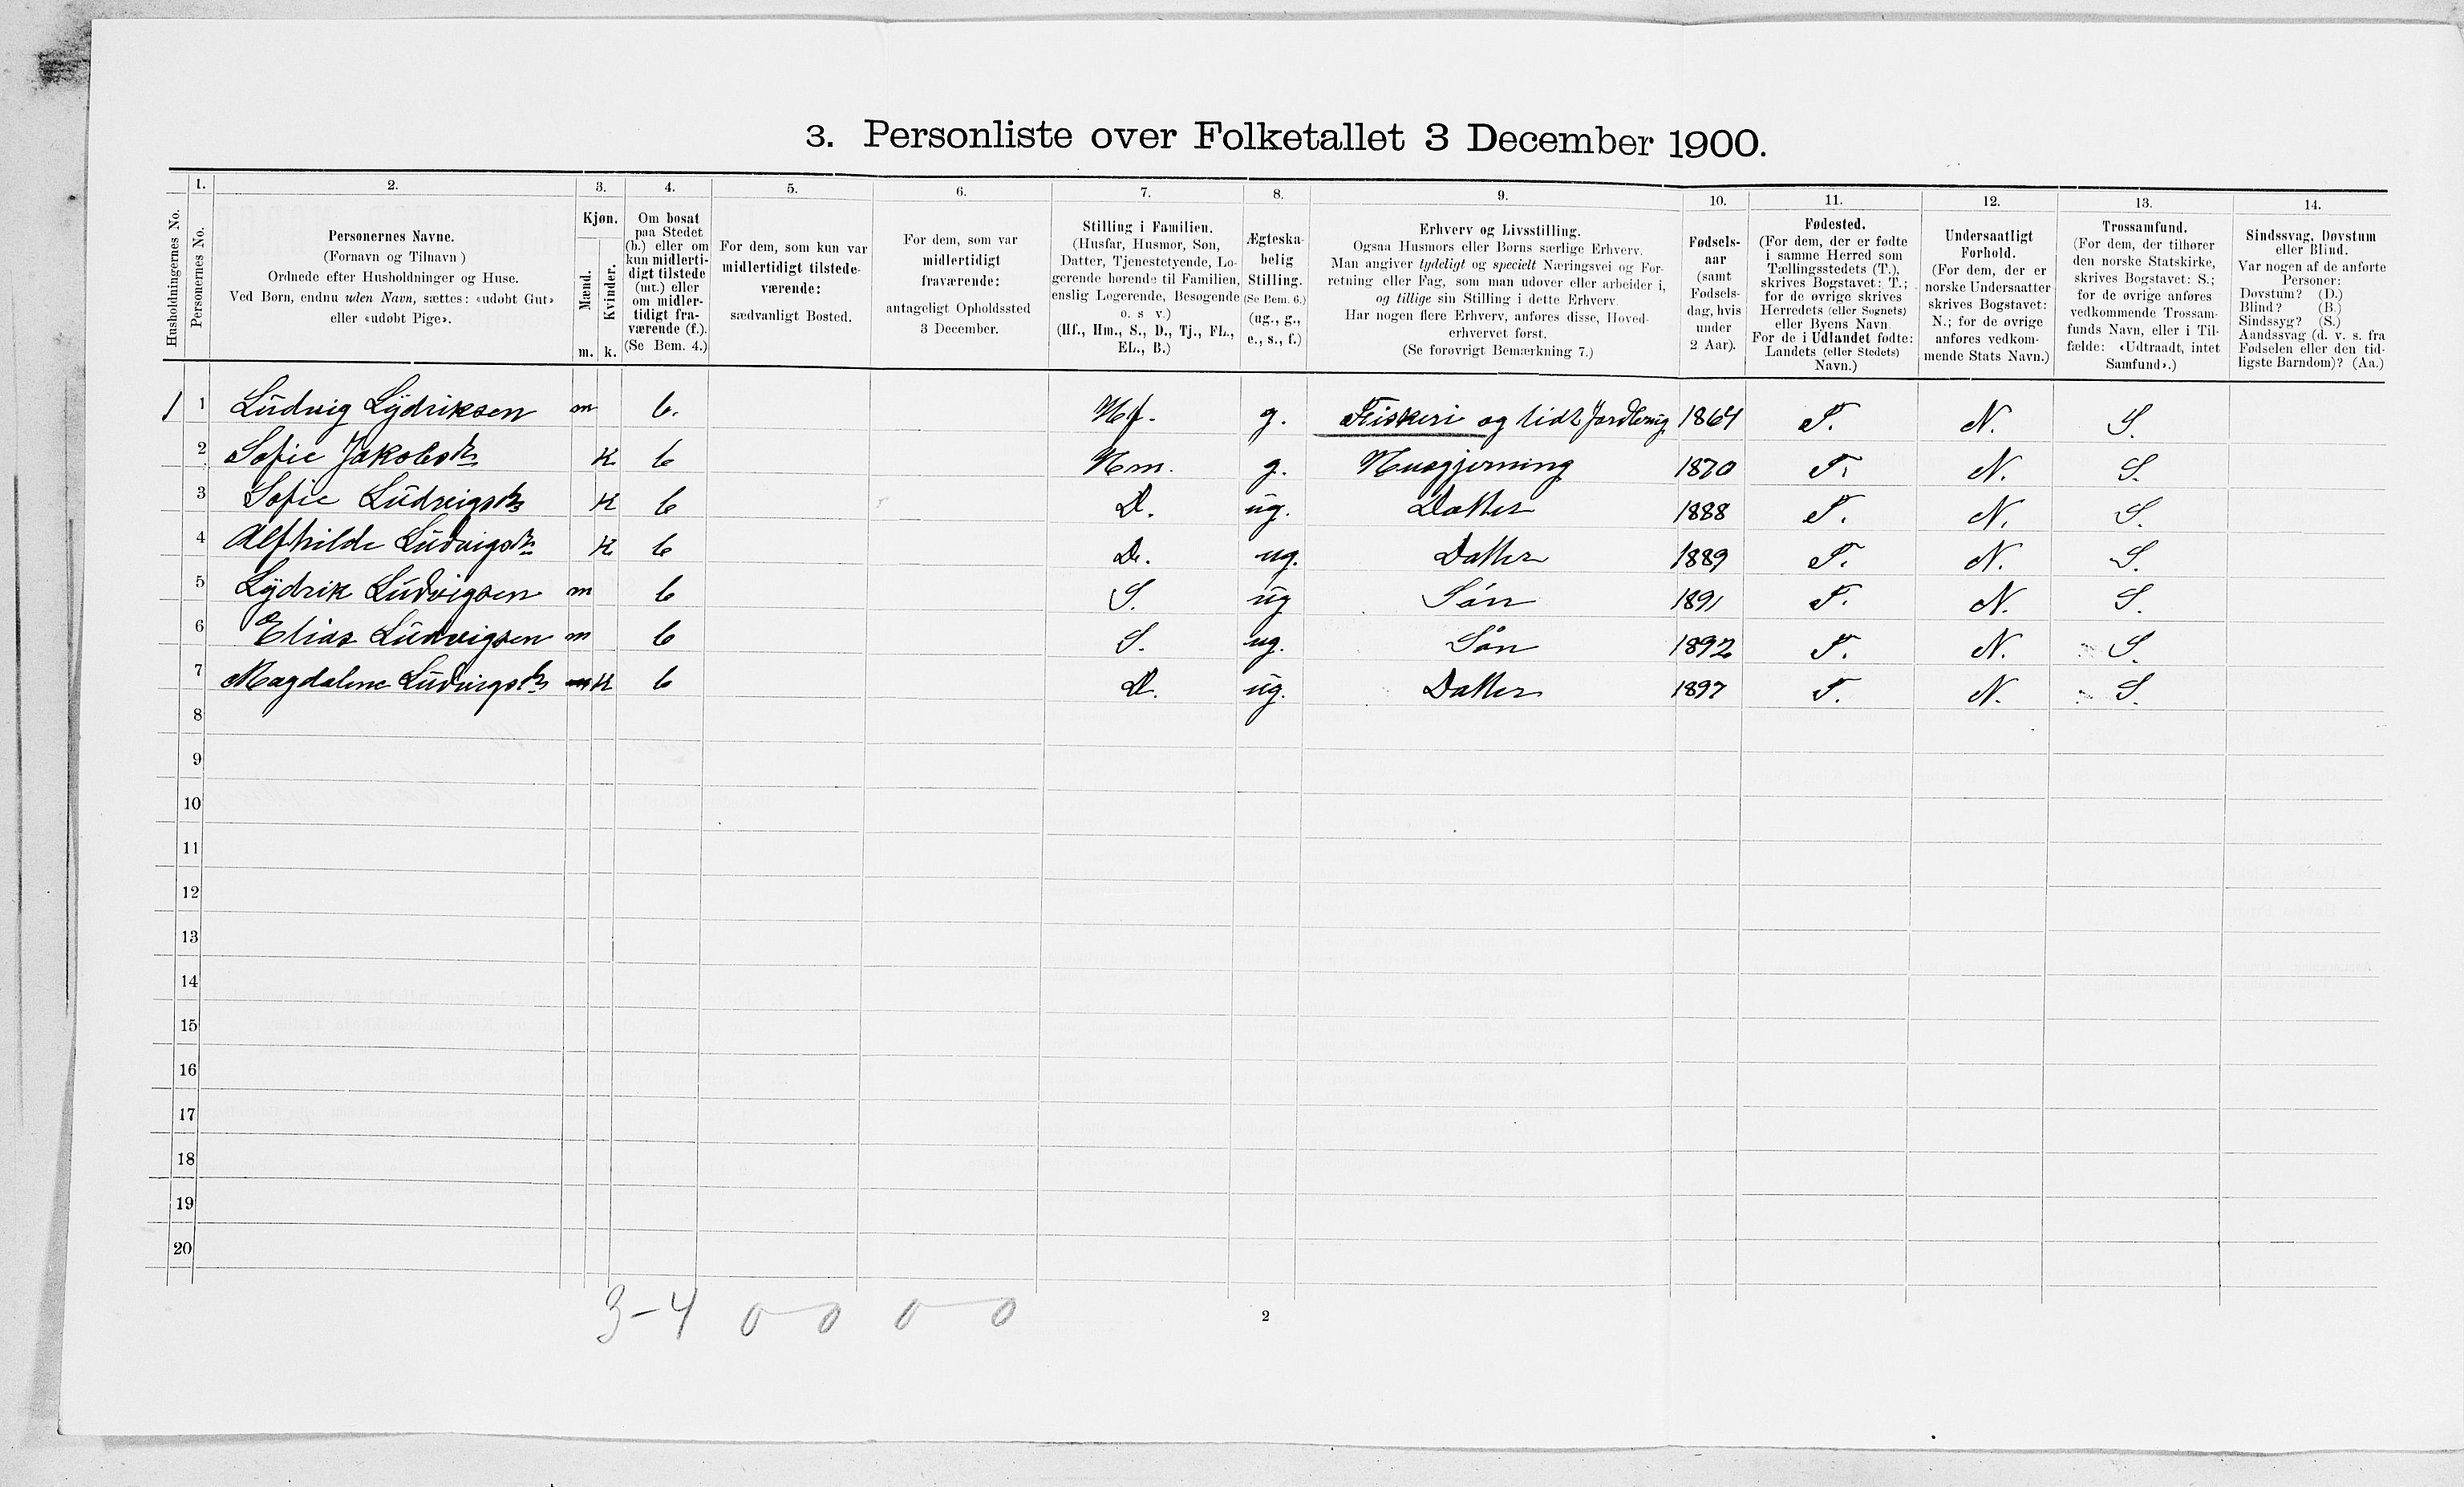 3. Personliste over Folketallet 3 December 1900.
1. 2. 3. 4. 5. 6. 7. 8. 9. 10. 11. 12. 13. 14.
Husholdningernes No.
Personernes No.
Personernes Navne.
(Fornavn og Tilnavn)
Ordnede efter Husholdninger og Huse.
Ved Børn, endnu uden Navn, sættes: «udøbt Gut»
eller «udøbt Pige».
Kjøn.
Mænd.
Kvinder.
m. k.
Om bosat
paa Stedet
(b.) eller om
kun midlerti-
digt tilstede
(mt.) eller
om midler-
tidigt fra-
værende (f.).
(Se Bem. 4.)
For dem, som kun var
midlertidigt tilstede-
værende:
sædvanligt Bosted.
For dem, som var
midlertidigt
fraværende:
antageligt Opholdssted
3 December.
Stilling i Familien.
(Husfar, Husmor, Søn,
Datter, Tjenestetyende, Lo-
gerende hørende til Familien,
enslig Logerende, Besøgende
o. s v.)
(Hf., Hm., S., D., Tj., FL.,
EL., B.)
Ægteska-
belig
Stilling.
(Se Bem. 6.)
(ug., g.,
e., s., f.)
Erhverv og Livsstilling.
Ogsaa Husmors eller Børns særlige Erhverv.
Man angiver tydeligt og specielt Næringsvei og For-
retning eller Fag, som man udøver eller arbeider i,
og tillige sin Stilling i dette Erhverv.
Har nogen flere Erhverv, anføres disse, Hoved-
erhvervet først.
(Se forøvrigt Bemærkning 7.)
Fødsels-
aar
(samt
Fødsels-
dag, hvis
under
2 Aar).
Fødested.
(For dem, der er fødte
i samme Herred som
Tællingsstedets (T.),
skrives Bogstavet: T.;
for de øvrige skrives
Herredets (eller Sognets)
eller Byens Navn.
For de i Udlandet fødte:
Landets (eller Stedets)
Navn.)
Undersaatligt
Forhold.
(For dem, der er
norske Undersaatter
skrives Bogstavet:
N.; for de øvrige
anføres vedkom-
mende Stats Navn.)
Trossamfund.
(For dem, der tilhører
den norske Statskirke,
skrives Bogstavet: S.;
for de øvrige anføres
vedkommende Trossam-
funds Navn, eller i Til-
fælde: «Udtraadt, intet
Samfund».)
Sindssvag, Døvstum
eller Blind.
Var nogen af de anførte
Personer:
Døvstum? (D.)
Blind? (B.)
Sindssyg? (S.)
Aandssvag (d. v. s. fra
Fødselen eller den tid-
ligste Barndom)? (Aa.)
1 1 Ludvig Lydriksen m b. Hf. g. Fiskeri og lidt Jordbrug 1864 T. N. S.
2 Sofie Jakobsdr K b Hm. g. Husgjerning 1870 T. N. S.
3 Sofie Ludvigsdr K b D. ug. Datter 1888 T. N. S.
4 Alfhilde Ludvigsdr K b D. ug. Datter 1889 T. N. S.
5 Lydrik Ludvigsen m b S. ug Søn 1891 T. N. S.
6 Elias Ludvigsen m b S. ug. Søn 1892 T. N. S.
7 Magdalene Ludvigsdr K b D. ug. Datter 1897 T. N. S.
8
9
10
11
12
13
14
15
16
17
18
19
20
3-4 0 0 0 0
2